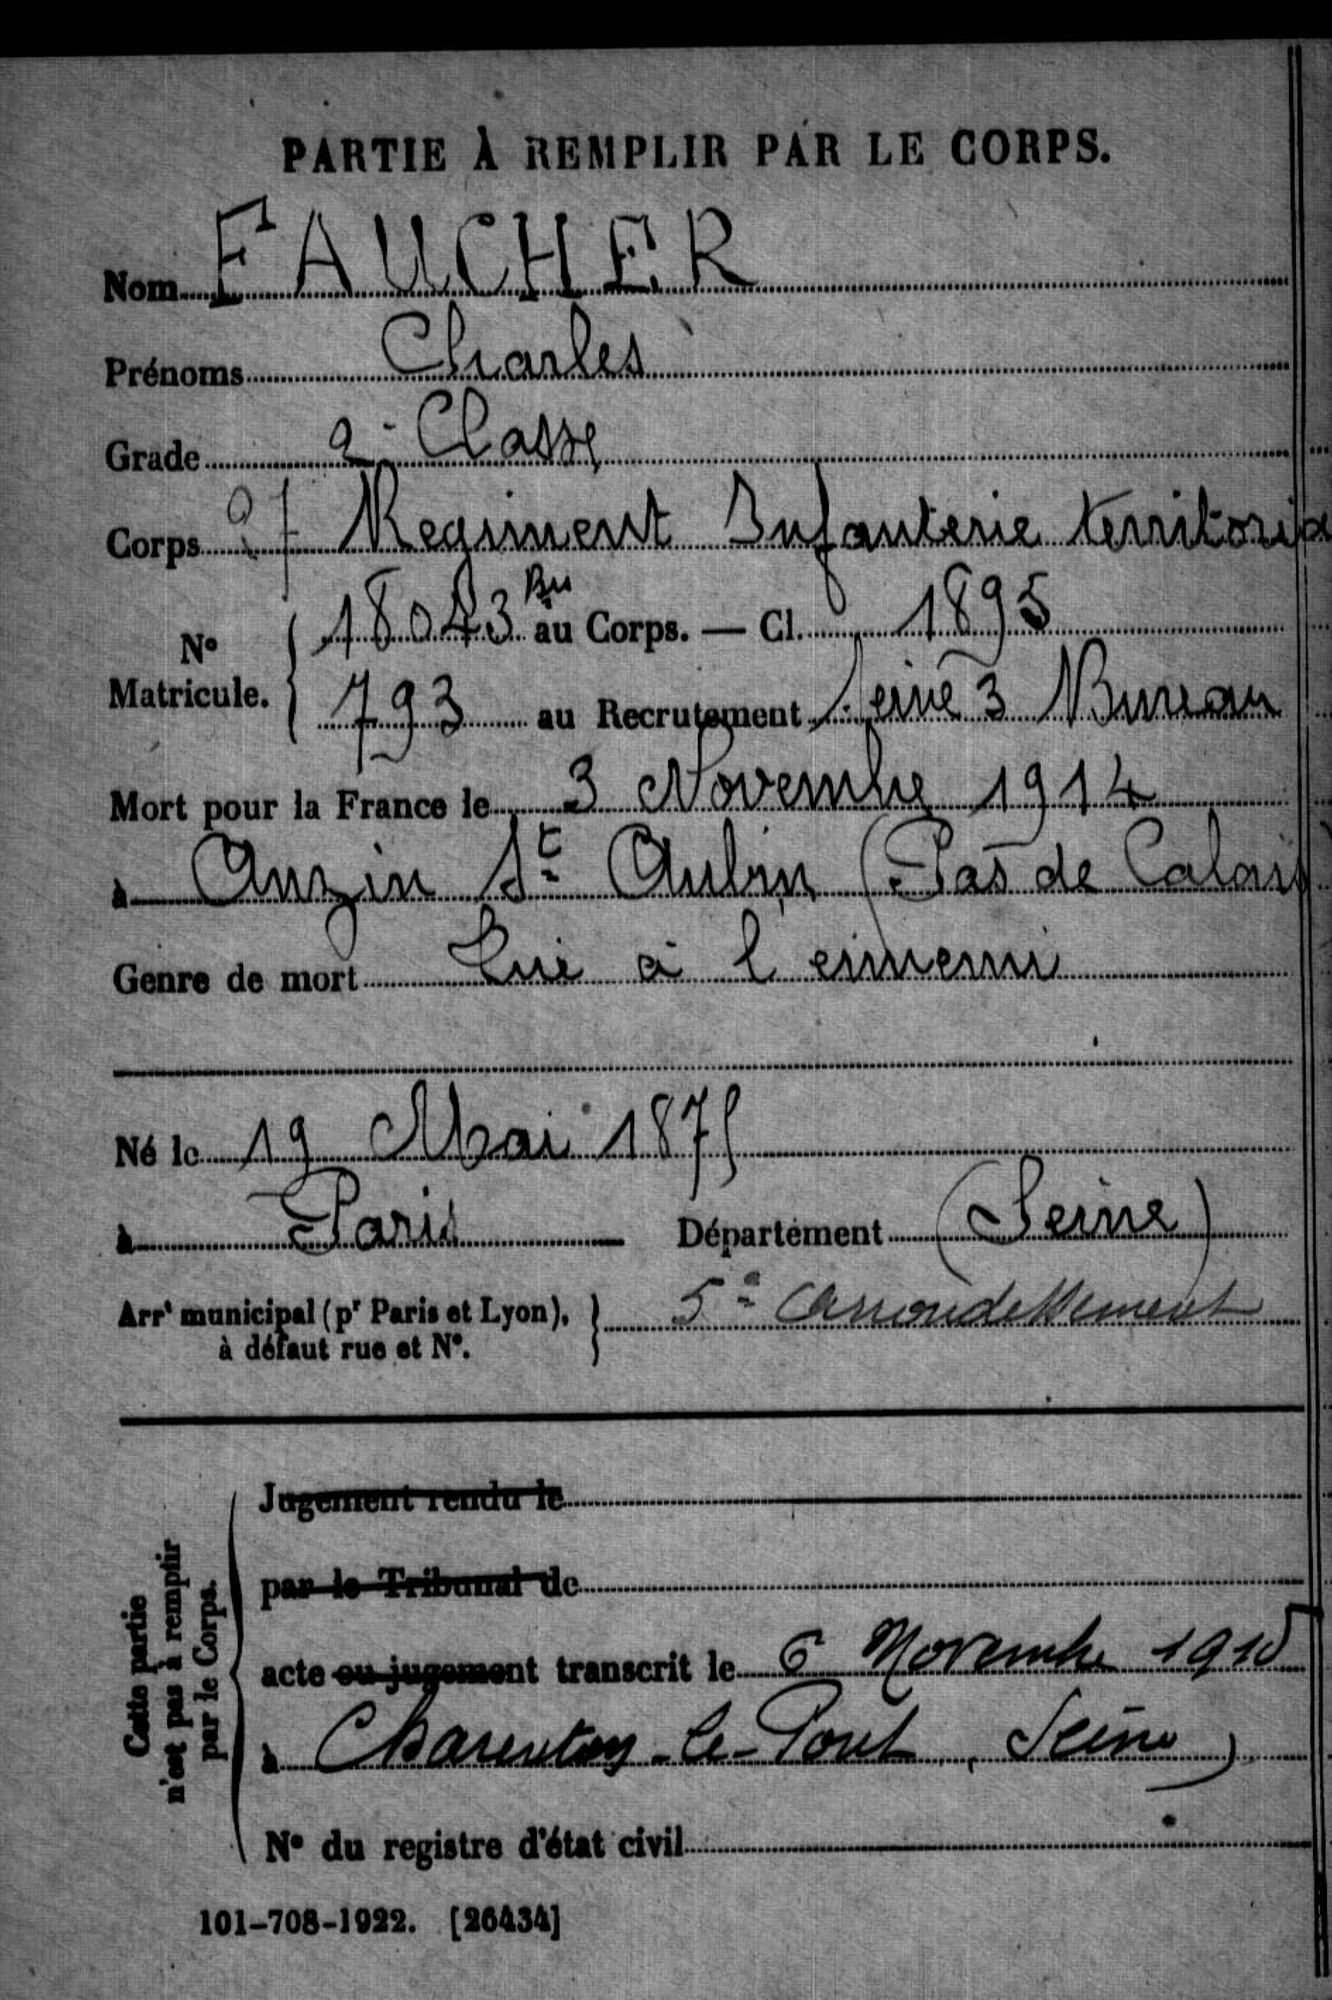 PARTIE À REMPLIR PAR LE CORPS.
Nom FAUCHER
Prénoms Charles
Grade 2e Classe
Corps 27 Regiment Infanterie territoria
No Matricule. 18043 Bu au Corps. — Cl. 1895
793 au Recrutement Seine 3 Bureau
Mort pour la France le 3 Novembre 1914
à Anzin St Aubin (Pas de Calais)
Genre de mort Tué à l ennemi
Né le 19 Mai 1875
à Paris Département (Seine)
Arrt municipal (pr Paris et Lyon), à défaut rue et No. 5e Arrondissement
Cette partie n'est pas à remplir par le Corps.
Jugement rendu le
par le Tribunal de
acte ou jugement transcrit le 6 Novembre 1915
à Charenton-le-Pont, Seine)
No du registre d'état civil
101-708-1922. [26434]